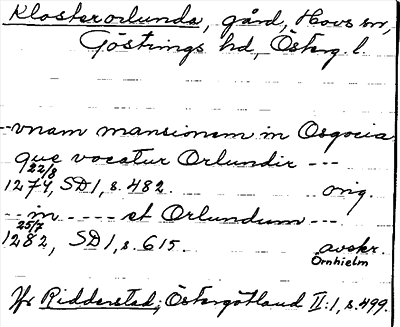 Klosterorlunda, gård, Hovs sn,
Göstrings hd, Österg. l.
--vnam mansionem in Osgocia
que vocatur Orlundir ---
22/8
1274, SD 1, s. 482. orig.
--in ---- et Orlundum ---
25/7
1282, SD 1, s. 615. avskr.
Örnhielm
Jfr Ridderstad, Östergötland II:1, s. 499.